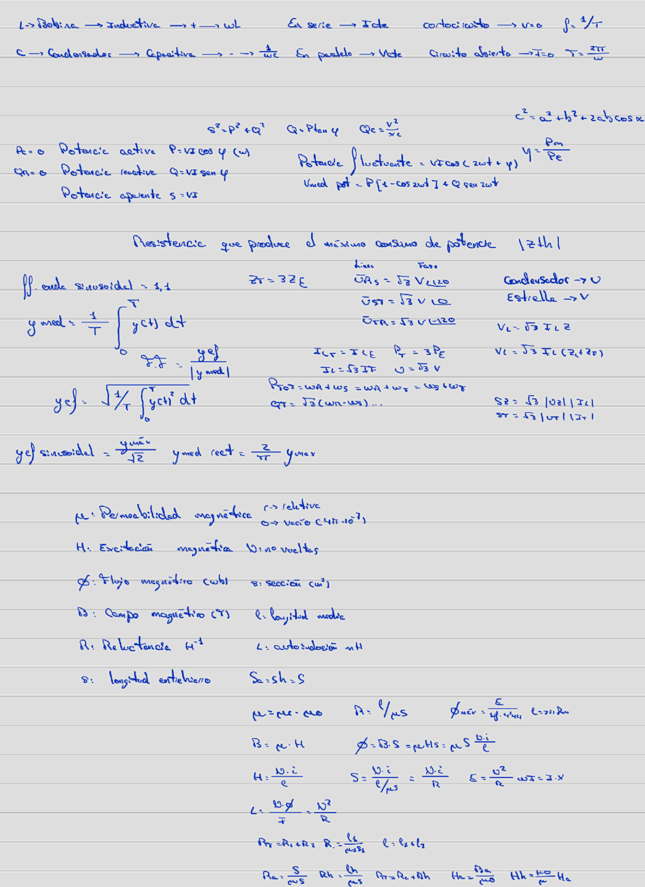 L→Bobina → Inductiva → + → wL   En serie → I cte   cortocircuito → V=0   f=1/T
C → Condensador → Capacitiva → - → 1/wc   En paralelo → Vcte   Circuito abierto → I=0   T=2π/w
c²=a²+b²+2abcosα
s²=P²+Q²   Q=Ptanφ   Qc=V²/xc
Pc=0   Potencia activa P=VIcosφ (w)
Potencia fluctuante = VIcos(2wt+φ)   η=Pm/Pe
QR=0   Potencia reactiva Q=VIsenφ
Vmed pot = P[1-cos2wt]+Qsen2wt
Potencia aparente S=VI
Resistencia que produce el máximo consumo de potencia |Zth|
ff. onda sinusoidal = 1,1   ZT=3ZE   Línea   Fase
URS=√3 V∠120   Condensador → U
UST=√3 V∠0   Estrella → V
y med = 1/T ∫₀ᵀ y(t) dt   UTR=√3 V∠-120   VL=√3 IL Z
f.f. = yef/|ymed|   ILT=ILE   PT=3PE   VL=√3 IL(ZL+ZF)
IL=√3IF   U=√3V
yef = √(1/T ∫₀ᵀ y(t)² dt)   PTOT=WR+WS=WR+WT=WS+WT
QT=√3(WR-WS)...   SZ=√3|UZ||IL|
ST=√3|UT||IT|
yef sinusoidal = ymáx/√2   ymed rect = 2/π ymax
μ: Permeabilidad magnética   r→relativa
0→vacío (4π·10⁻⁷)
H: Excitación magnética   N: no vueltas
ϕ: Flujo magnético (wb)   s: sección (m²)
B: Campo magnético (T)   l: longitud media
R: Reluctancia H⁻¹   L: autoinducción mH
δ: longitud entrehierro   Sa=Sh=S
μ=μr·μ0   R=l/μS   ϕmáx=E/N·f·4,44   l=2πRm
B=μ·H   ϕ=B·S=μHS=μS N·i/l
H=N·i/l   N·i/(l/μS) = N·i/R   N²/R
L=N·ϕ/I=N²/R
RT=R1+R2   l=l1+l2
Ra=δ/μ0S   Rh=lh/μS   RT=Ra+Rh   Ha=Ba/μ0   Hh=μ0/μ Ha